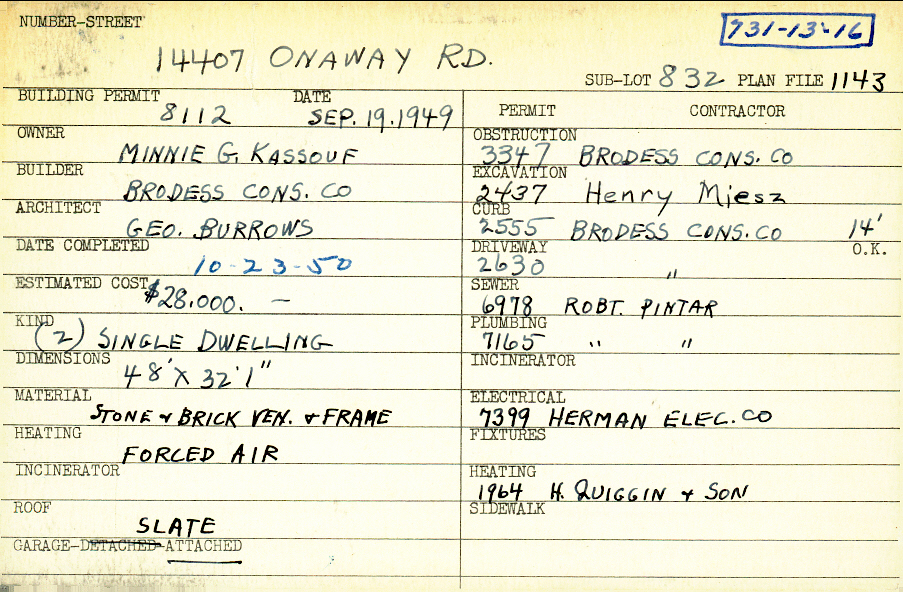 NUMBER-STREET
731-13-16
14407 ONAWAY RD.
SUB-LOT 832 PLAN FILE 1143
BUILDING PERMIT DATE
8112 SEP. 19. 1949
OWNER
MINNIE G. KASSOUF
BUILDER
BRODESS CONS. CO
ARCHITECT
GEO. BURROWS
DATE COMPLETED
10-23-50
ESTIMATED COST
$28,000. —
KIND
(2) SINGLE DWELLING
DIMENSIONS
48' X 32'1"
MATERIAL
STONE & BRICK VEN. & FRAME
HEATING
FORCED AIR
INCINERATOR
ROOF
SLATE
GARAGE-DETACHED-ATTACHED
PERMIT CONTRACTOR
OBSTRUCTION
3347 BRODESS CONS. CO
EXCAVATION
2437 Henry Miesz
CURB
2555 BRODESS CONS. CO 14'
DRIVEWAY O.K.
2630 "
SEWER
6978 ROBT. PINTAR
PLUMBING
7165 " "
INCINERATOR
ELECTRICAL
7399 HERMAN ELEC. CO
FIXTURES
HEATING
1964 H. QUIGGIN & SON
SIDEWALK